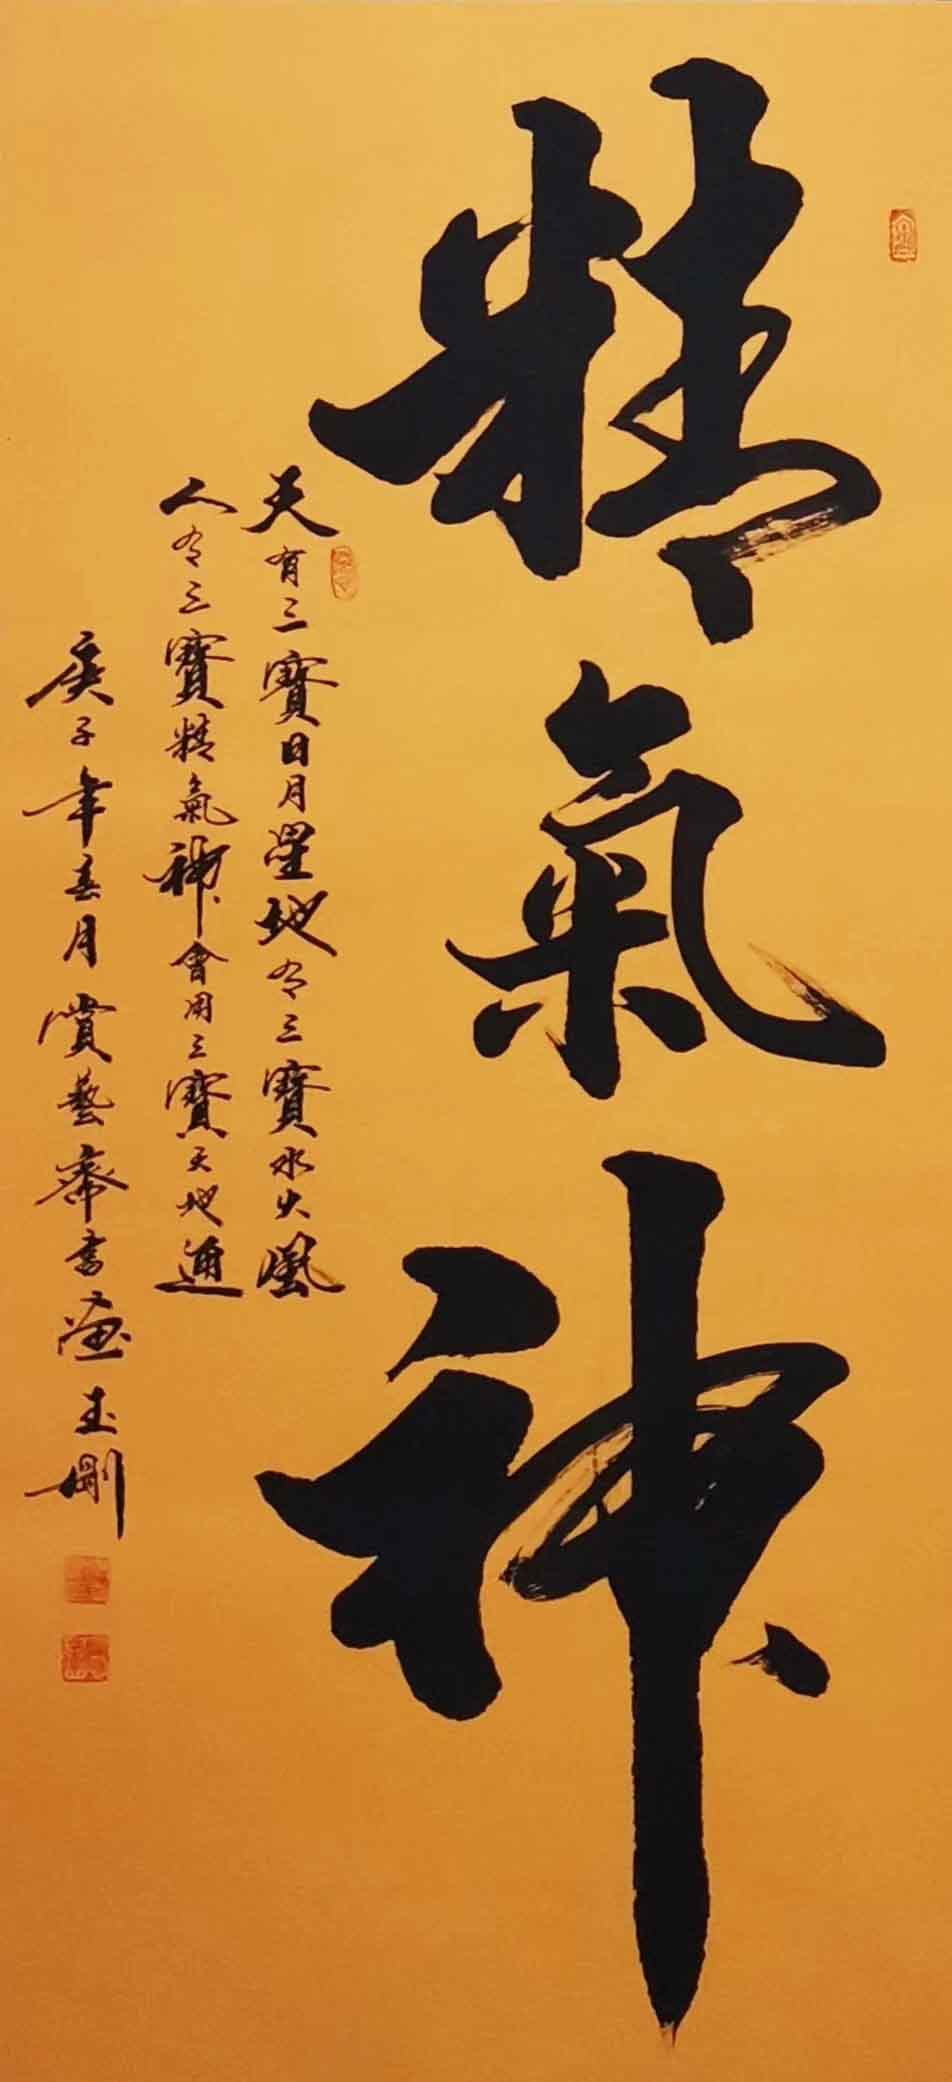 精氣神
天有三寶日月星地有三寶水火風
人有三寶精氣神會用三寶天地通
庚子年春月賞藝齋書畫玉剛